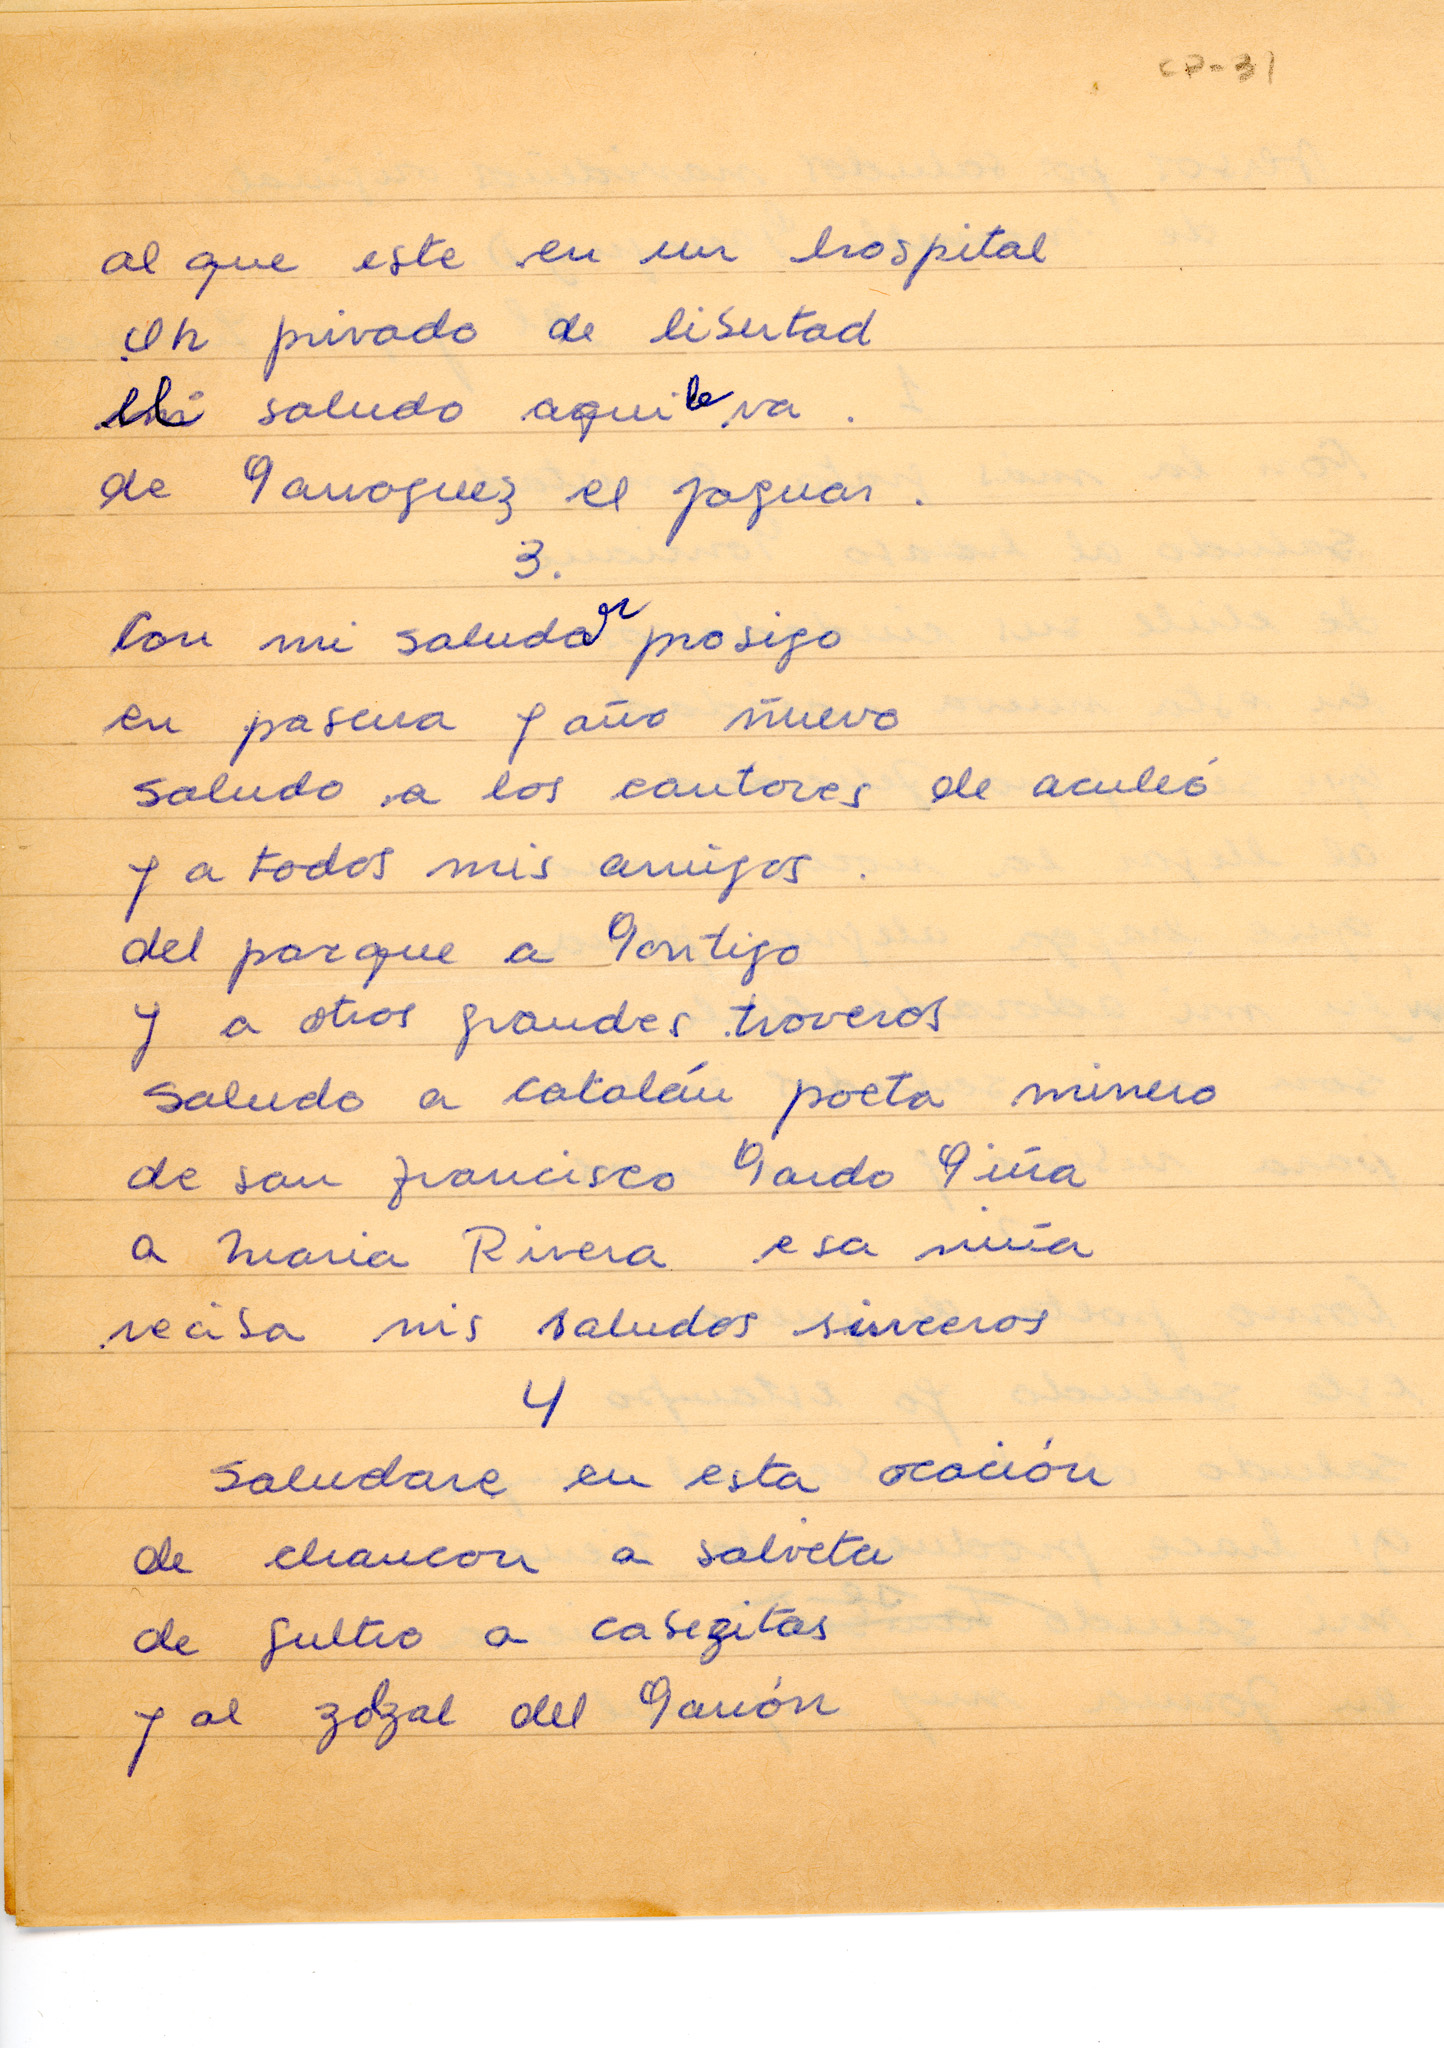 CP-31
al que este en un hospital
un privado de libertad
mi saludo aqui le va.
de Parroguez el jaguar.
3.
Con mi saludar prosigo
en pascua y año ñuevo
saludo a los cantores de aculeó
y a todos mis amigos.
del parque a Pontigo
y a otros grandes troveros
saludo a catalán poeta minero
de san francisco Pardo Piña
a maria Rivera esa niña
reciba mis saludos sinceros
4
saludare en esta ocación
de chancon a
de gultro a casegitas
y al zolzal del Parrón